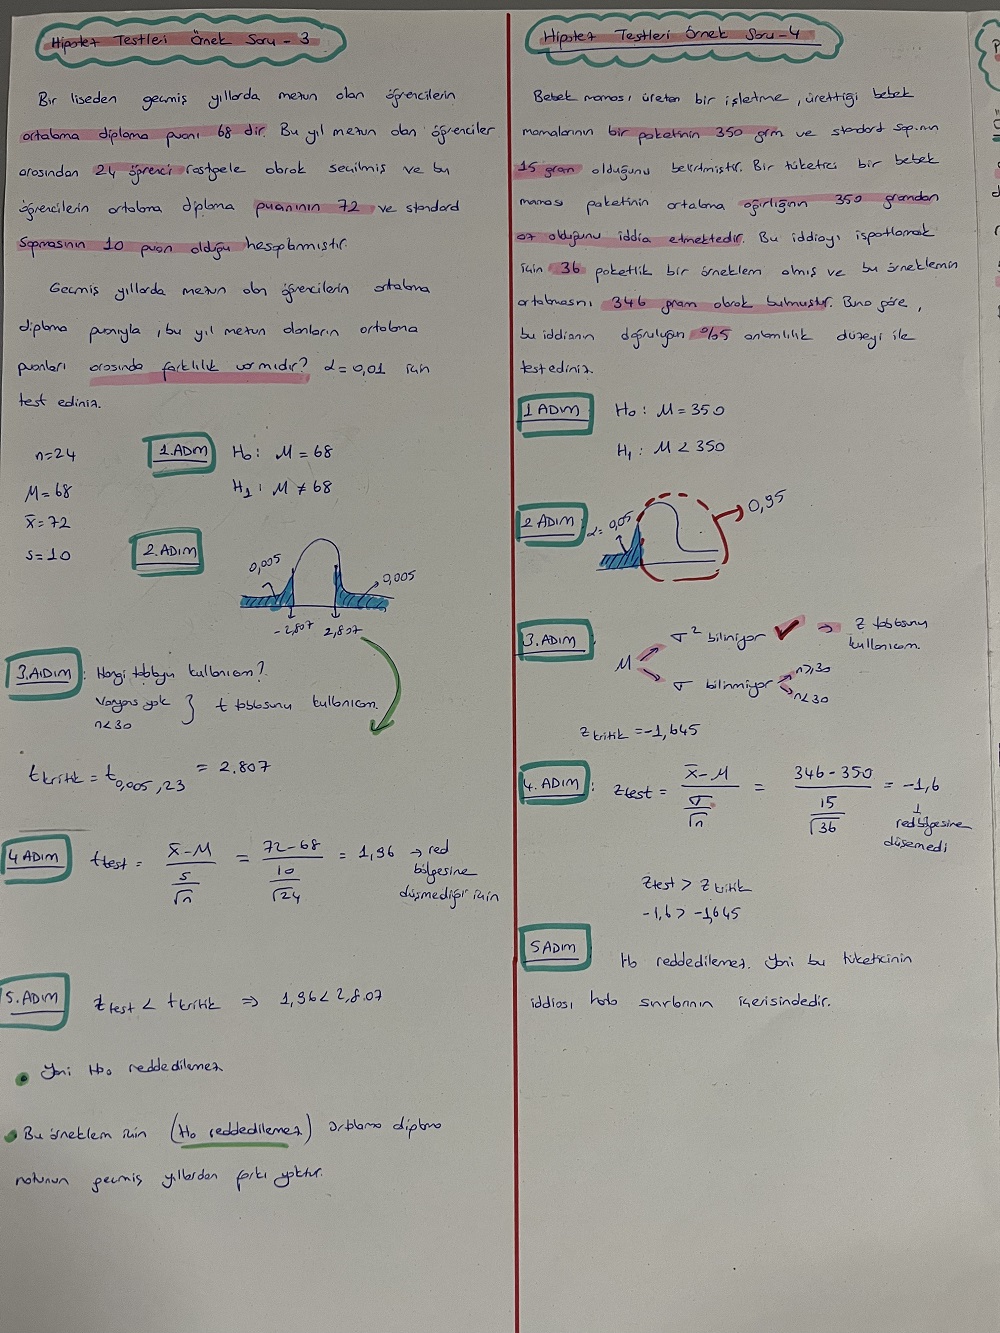 Hipotez Testleri Örnek Soru - 3
Bir liseden geçmiş yıllarda mezun olan öğrencilerin
ortalama diploma puanı 68 dir. Bu yıl mezun olan öğrenciler
arasından 24 öğrenci rastgele olarak seçilmiş ve bu
öğrencilerin ortalama diploma puanının 72 ve standard
sapmasının 10 puan olduğu hesaplanmıştır.
Geçmiş yıllarda mezun olan öğrencilerin ortalama
diploma puanıyla, bu yıl mezun olanların ortalama
puanları arasında farklılık varmıdır? α=0,01 için
test ediniz.
n=24
M=68
x̄=72
s=10
1.ADIM
H₀: M = 68
H₁: M ≠ 68
2.ADIM
0,005
0,005
-2,807 2,807
3.ADIM : Hangi tabloyu kullanıcam?
Varyans yok
n<30
} t tablosunu kullanıcam.
t kritik = t 0,005,23 = 2.807
4 ADIM
t test = x̄-M / (s/√n) = 72-68 / (10/√24) = 1,96 → red
bölgesine
düşmediği için
5.ADIM
t test < t kritik ⇒ 1,96<2,807
Yani H₀ reddedilemez
Bu örneklem için (H₀ reddedilemez) ortalama diploma
notunun geçmiş yıllardan farkı yoktur.
Hipotez Testleri Örnek Soru - 4
Bebek maması üreten bir işletme, ürettiği bebek
mamalarının bir paketinin 350 grm ve standard sap.nın
15 gram olduğunu belirtmiştir. Bir tüketici bir bebek
maması paketinin ortalama ağırlığının 350 gramdan
az olduğunu iddia etmektedir. Bu iddiayı ispatlamak
için 36 paketlik bir örneklem almış ve bu örneklemin
ortalmasını 346 gram olarak bulmuştur. Buna göre,
bu iddianın doğruluğun %5 anlamlılık düzeyi ile
test ediniz.
1 ADIM
H₀ : M = 350
H₁ : M < 350
2 ADIM
α= 0,05
0,95
3.ADIM :
M
σ² biliniyor ✓ → z tablosunu
kullanıcam.
σ bilinmiyor
n≥30
n<30
z kritik = -1,645
4. ADIM :
z test = x̄-M / (σ/√n) = 346-350 / (15/√36) = -1,6
↓
red bölgesine
düşmedi
z test > z kritik
-1,6 > -1,645
5 ADIM
H₀ reddedilemez. Yani bu tüketicinin
iddiası hata sınırlarının içerisindedir.